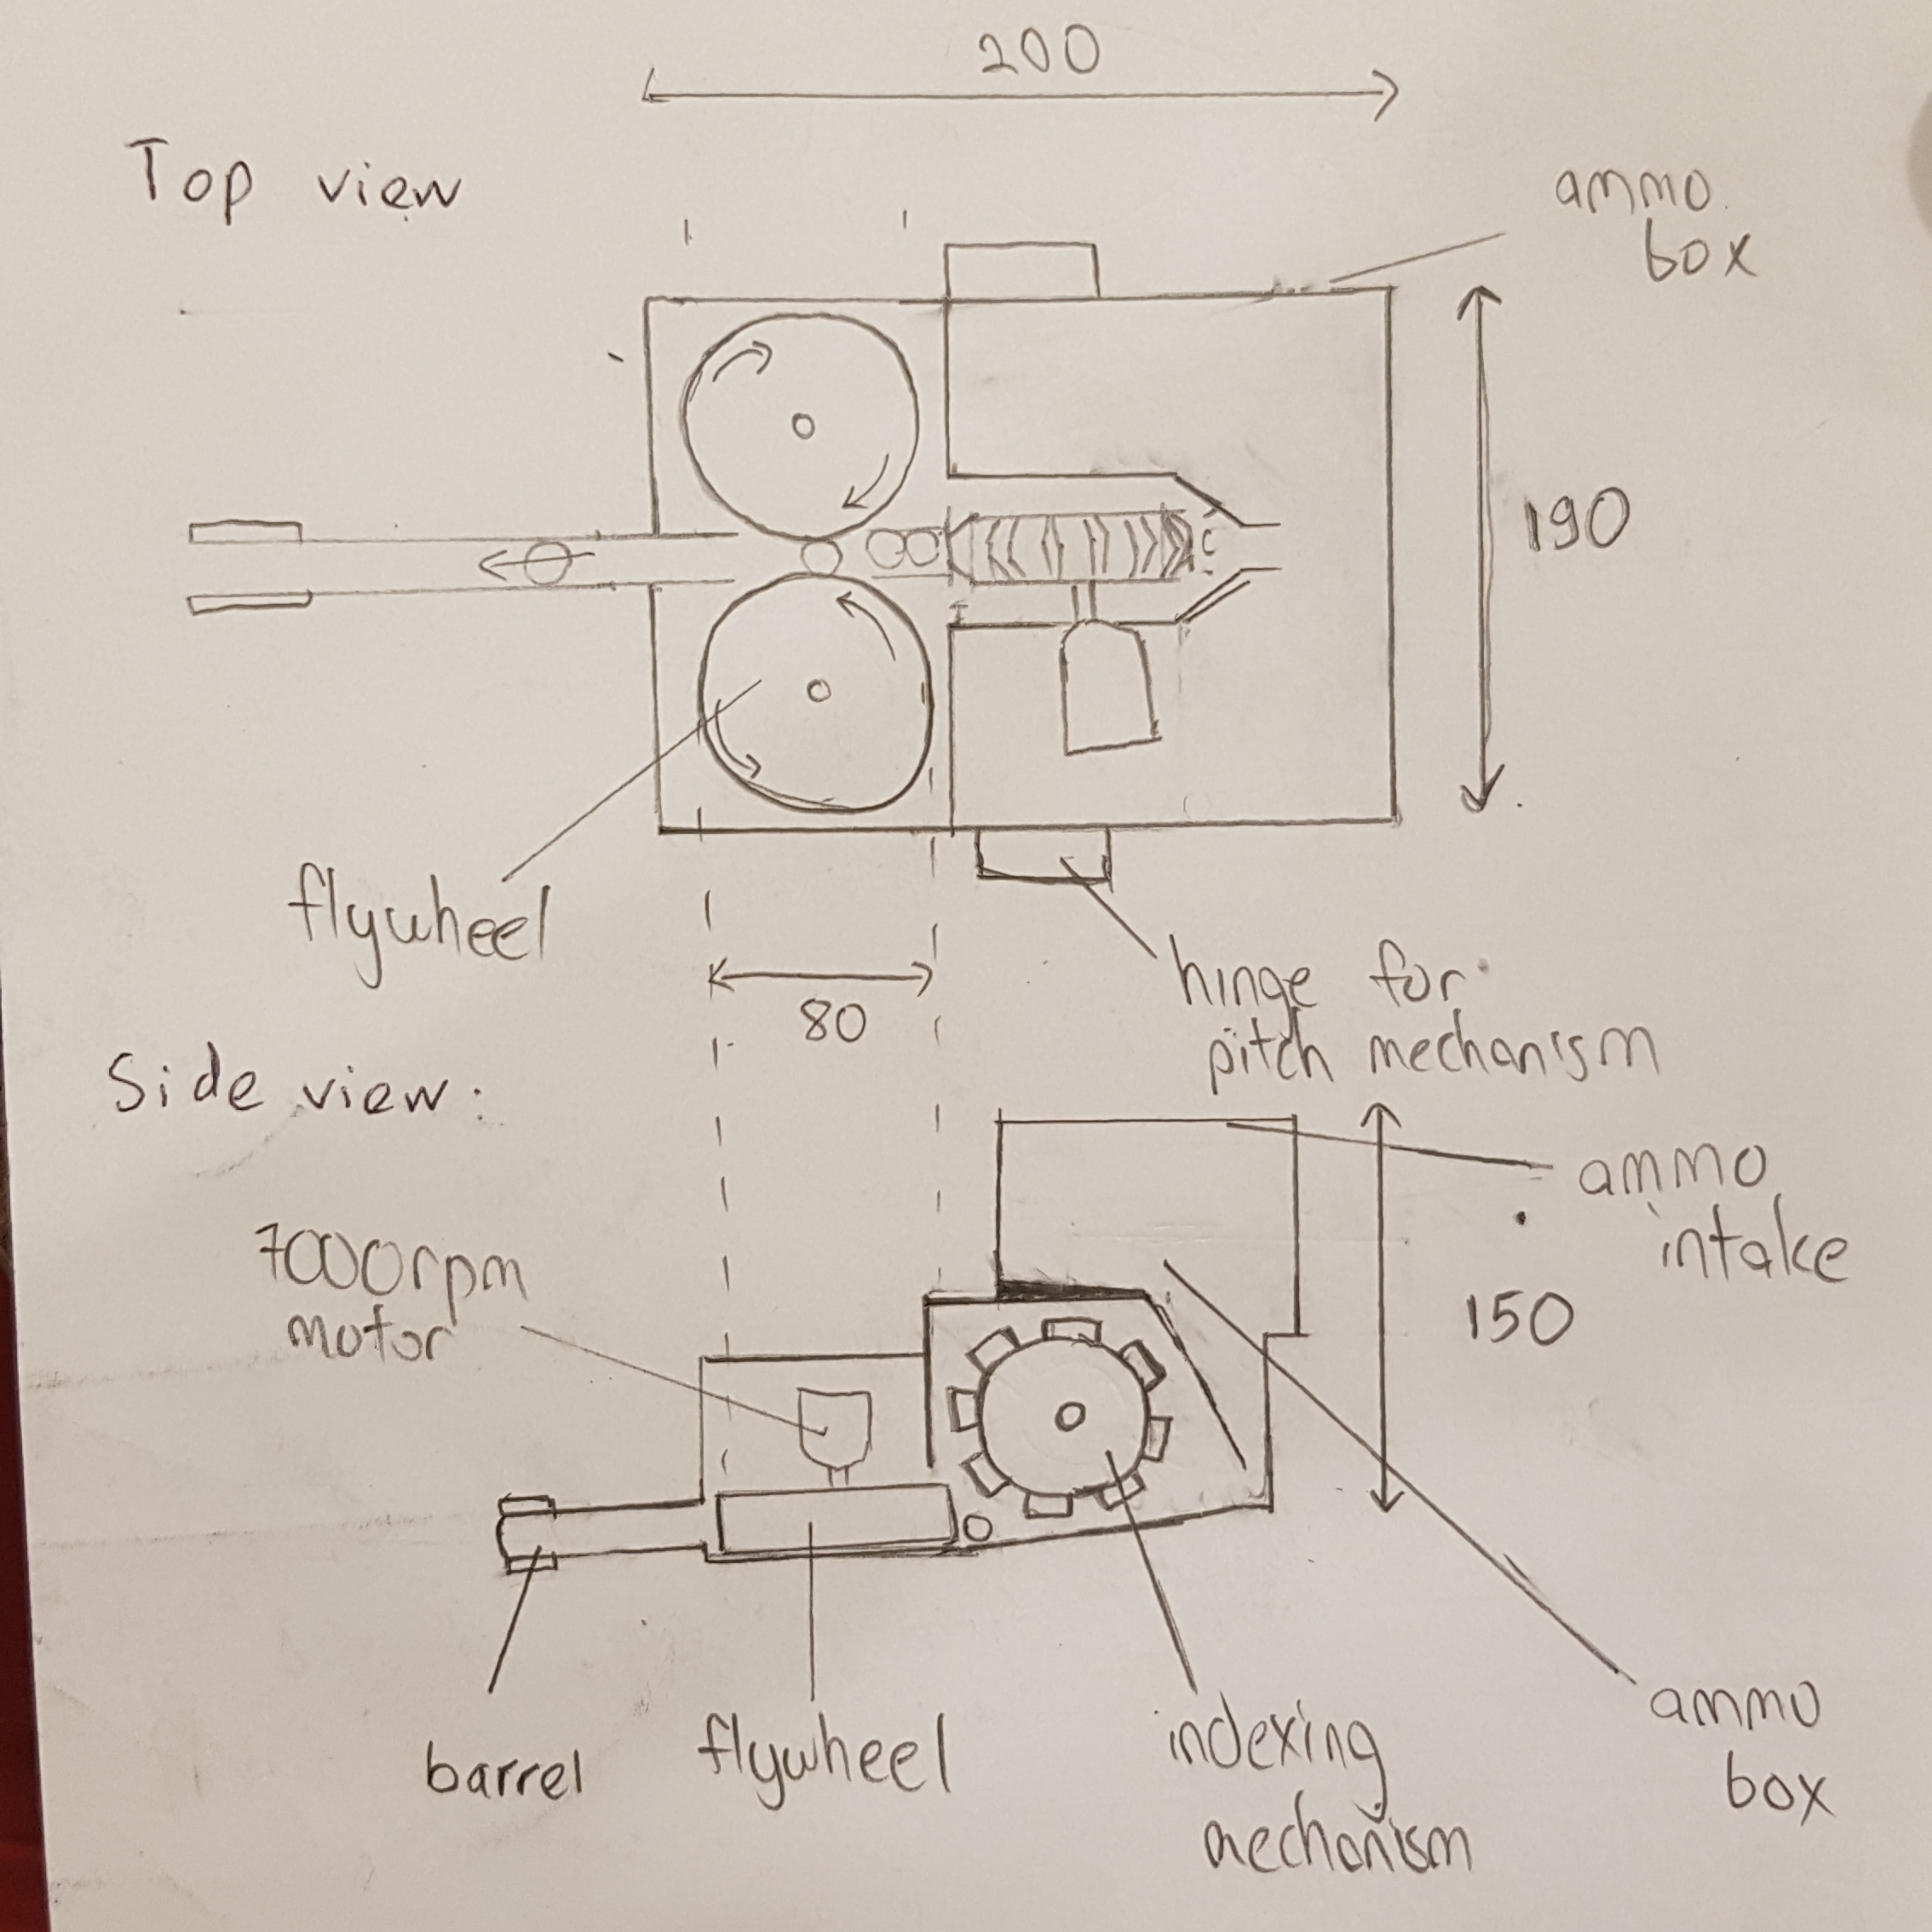 200
Top view
ammo
box
190
flywheel
80
hinge for
pitch mechanism
Side view:
ammo
intake
7000rpm
motor
150
barrel
flywheel
indexing
mechanism
ammo
box